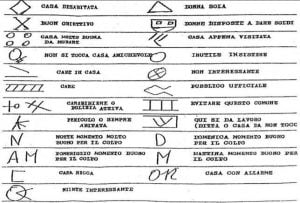 CASA DISABITATA
DONNA SOLA
BUON OBIETTIVO
DONNE DISPOSTE A DARE SOLDI
CASA MOLTO BUONA
DA RUBARE
CASA APPENA VISITATA
QUI NON SI TOCCA CASA AMICHEVOLE
INUTILE INSISTERE
CANE IN CASA
NON INTERESSANTE
CANE
PUBBLICO UFFICIALE
CARABINIERE O
POLIZIA ATTIVA
EVITARE QUESTO COMUNE
PERICOLO
ABITATA
QUI SI DA LAVORO
N
NOTTE MOMENTO MOLTO
BUONO PER IL COLPO
D
DOMENICA MOMENTO BUONO
PER IL COLPO
AM
POMERIGGIO MOMENTO BUONO
PER IL COLPO
M
MATTINA MOMENTO BUONO PER
IL COLPO
CASA RICCA
OR
CASA CON ALLARME
NIENTE INTERESSANTE